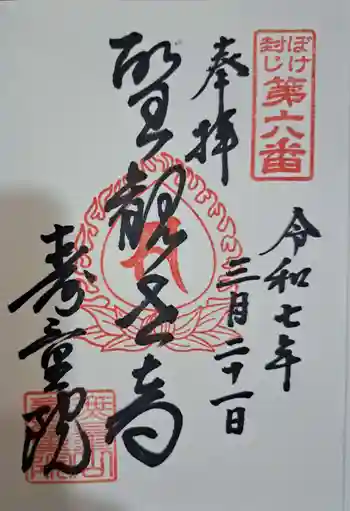 ぼけ
封じ
第六番
奉拝
令和七年
三月二十一日
聖観世音
寿量院